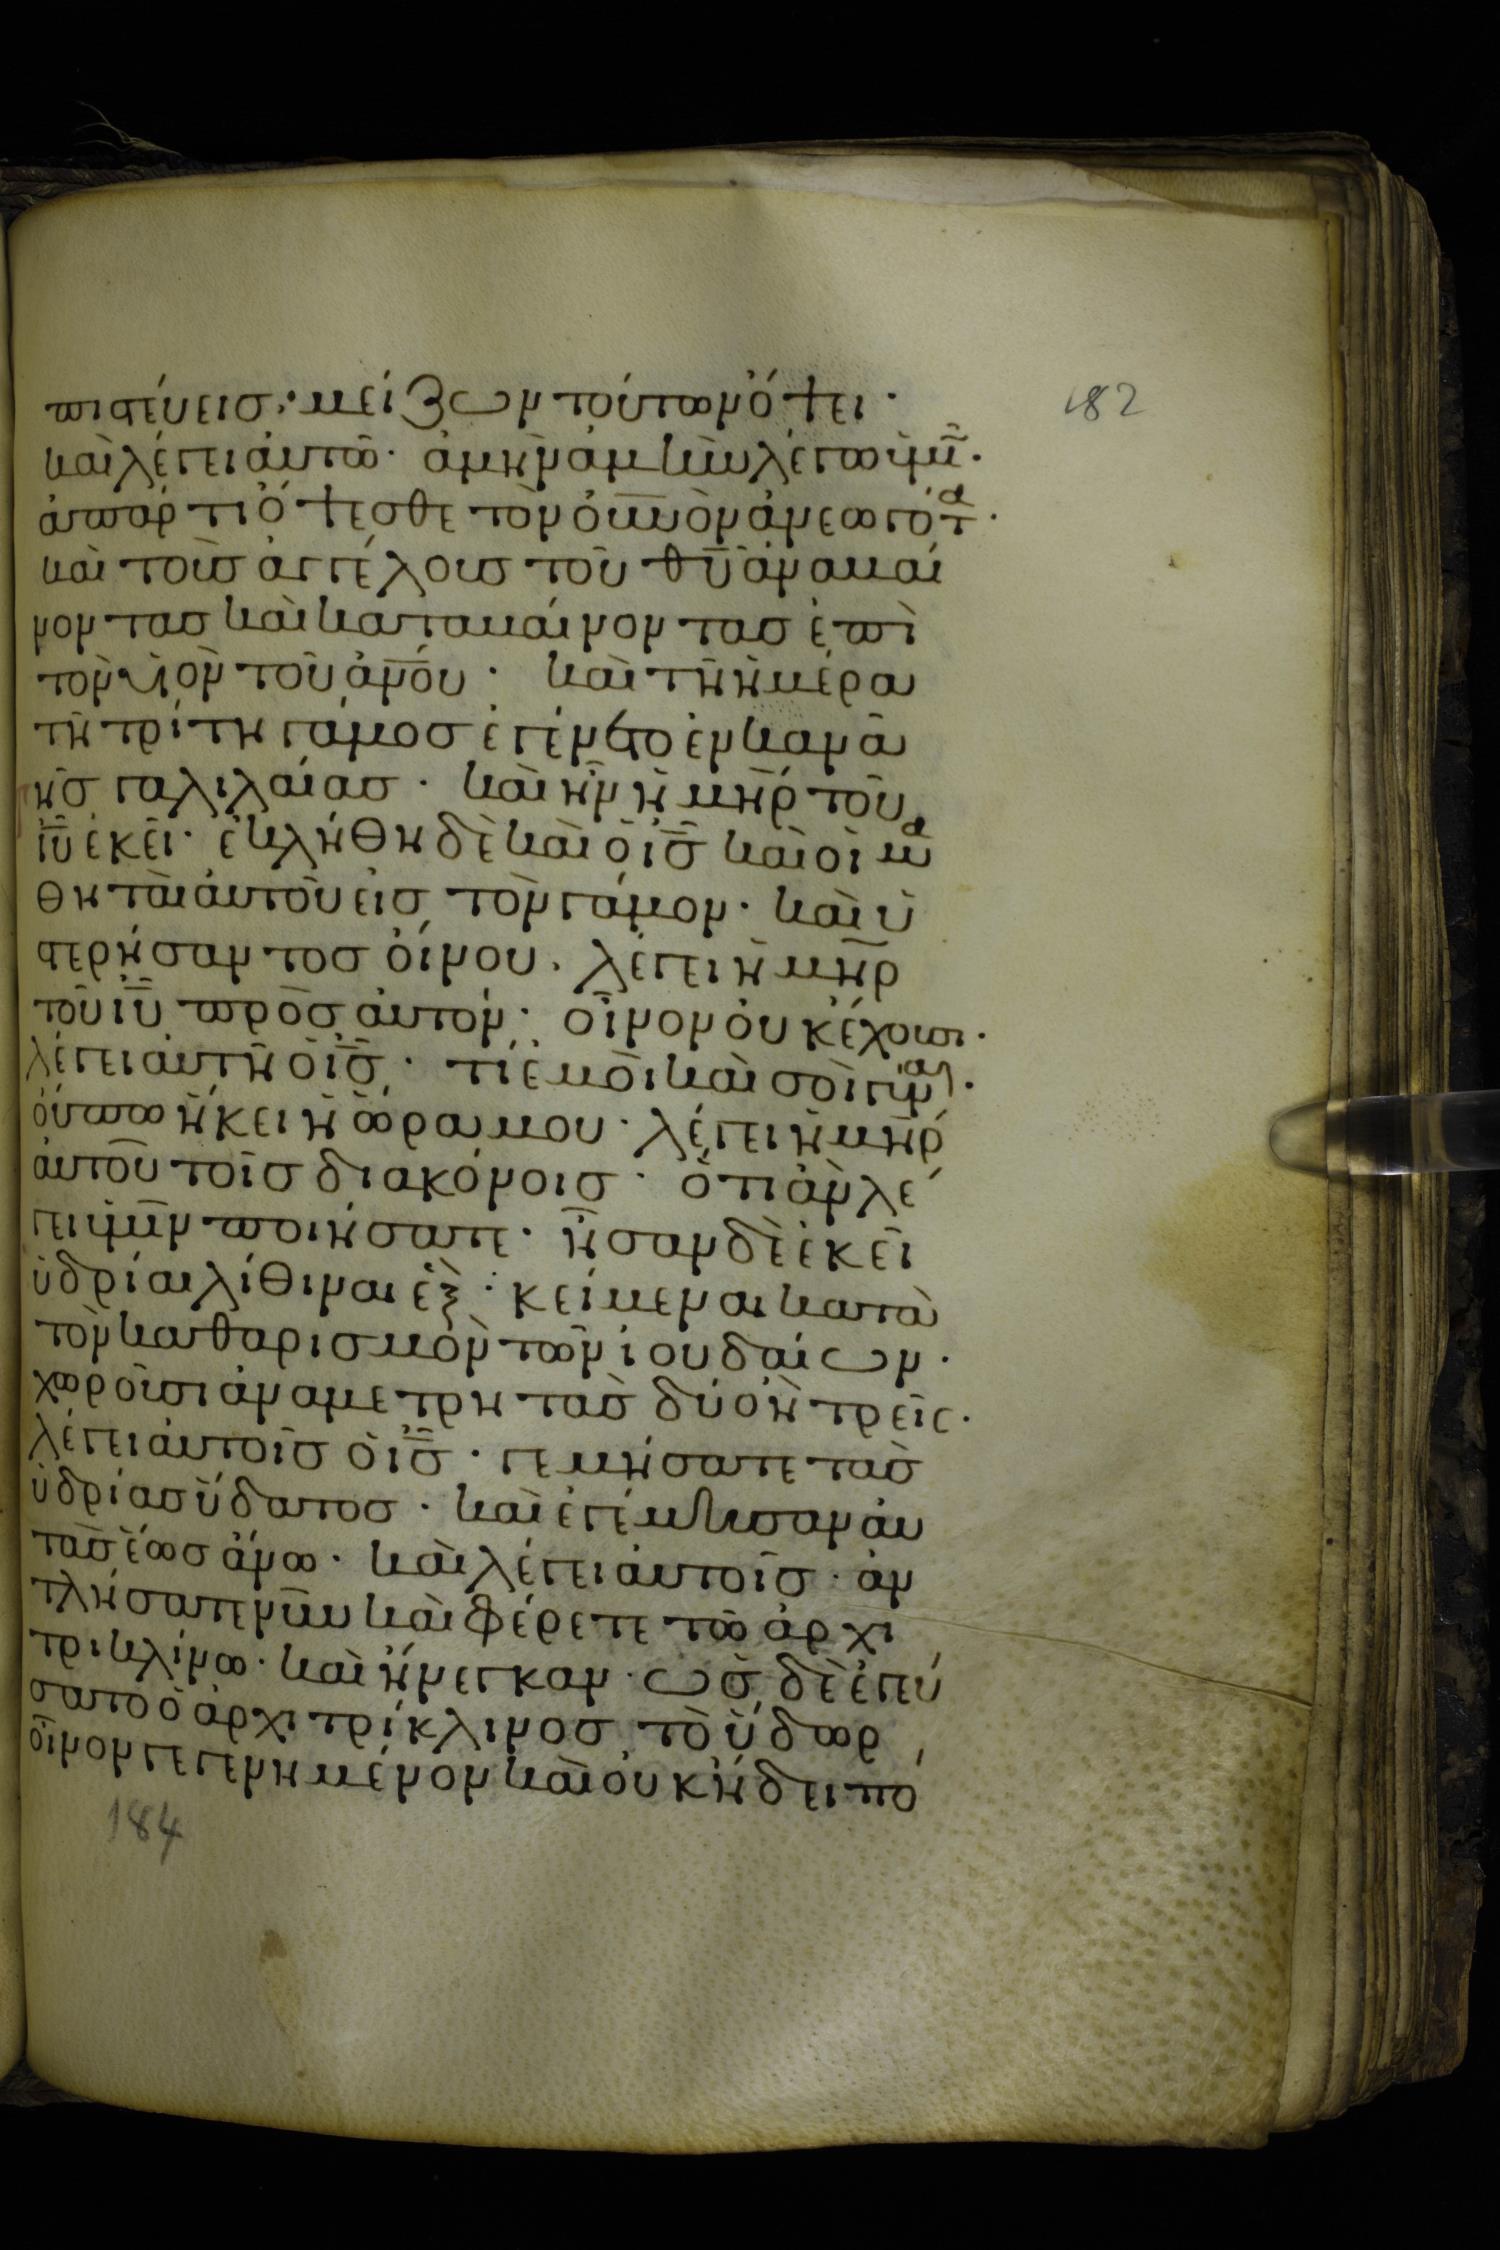 πιστεύεις· μείζων τούτων ὄψει·
182
καὶ λέγει αὐτῶ· ἀμὴν ἀμὴν λέγω ὑμῖ̄·
ἀπάρτι ὄψεσθε τὸν οὐ̅ν̅ὸν ἀνεωγότα·
καὶ τοὺς ἀγγέλους τοῦ θ̅υ̅ ἀναβαί
νοντας καὶ καταβαίνοντας ἐπὶ
τὸν υἱὸν τοῦ ἀ̅ν̅ο̅υ· καὶ τῆ ἡμέρα
τῆ τρίτη γάμος ἐγένετο ἐν κανᾶ
τῆς γαλιλαίας· καὶ ἦν ἡ μ̅η̅ρ τοῦ
ι̅υ̅ ἐκεῖ· ἐκλήθη δὲ καὶ ὁ ι̅ς̅ καὶ οἱ μα
θηταὶ αὐτοῦ εἰς τὸν γάμον· καὶ ὑ
στερήσαντος οἴνου· λέγει ἡ μ̅η̅ρ
τοῦ ι̅υ̅ πρὸς αὐτόν· οἶνον οὐκ ἔχουσι·
λέγει αὐτῆ ὁ ι̅ς̅· τί ἐμοὶ καὶ σοὶ γύναι·
οὔπω ἥκει ἡ ὥρα μου· λέγει ἡ μ̅η̅ρ
αὐτοῦ τοῖς διακόνοις· ὅτι ἂν λέ
γει ὑμῖν ποιήσατε· ἦσαν δὲ ἐκεῖ
ὑδρίαι λίθιναι ἓξ· κείμεναι κατὰ
τὸν καθαρισμὸν τῶν ἰουδαίων·
χωροῦσι ἀνα μετρητὰς δύο ἢ τρεῖς·
λέγει αὐτοῖς ὁ ι̅ς̅· γεμήσατε τὰς
ὑδρίας ὕδατος· καὶ ἐγέμισαν αὐ
τὰς ἕως ἄνω· καὶ λέγει αὐτοῖς· ἀν
τλήσατε νῦν καὶ φέρετε τῶ ἀρχι
τρικλίνω· καὶ ἤνεγκαν· ὡς δὲ ἐγεύ
σατο ὁ ἀρχιτρίκλινος τὸ ὕδωρ
οἶνον γεγενημένον καὶ οὐκ ἤδει πό
184